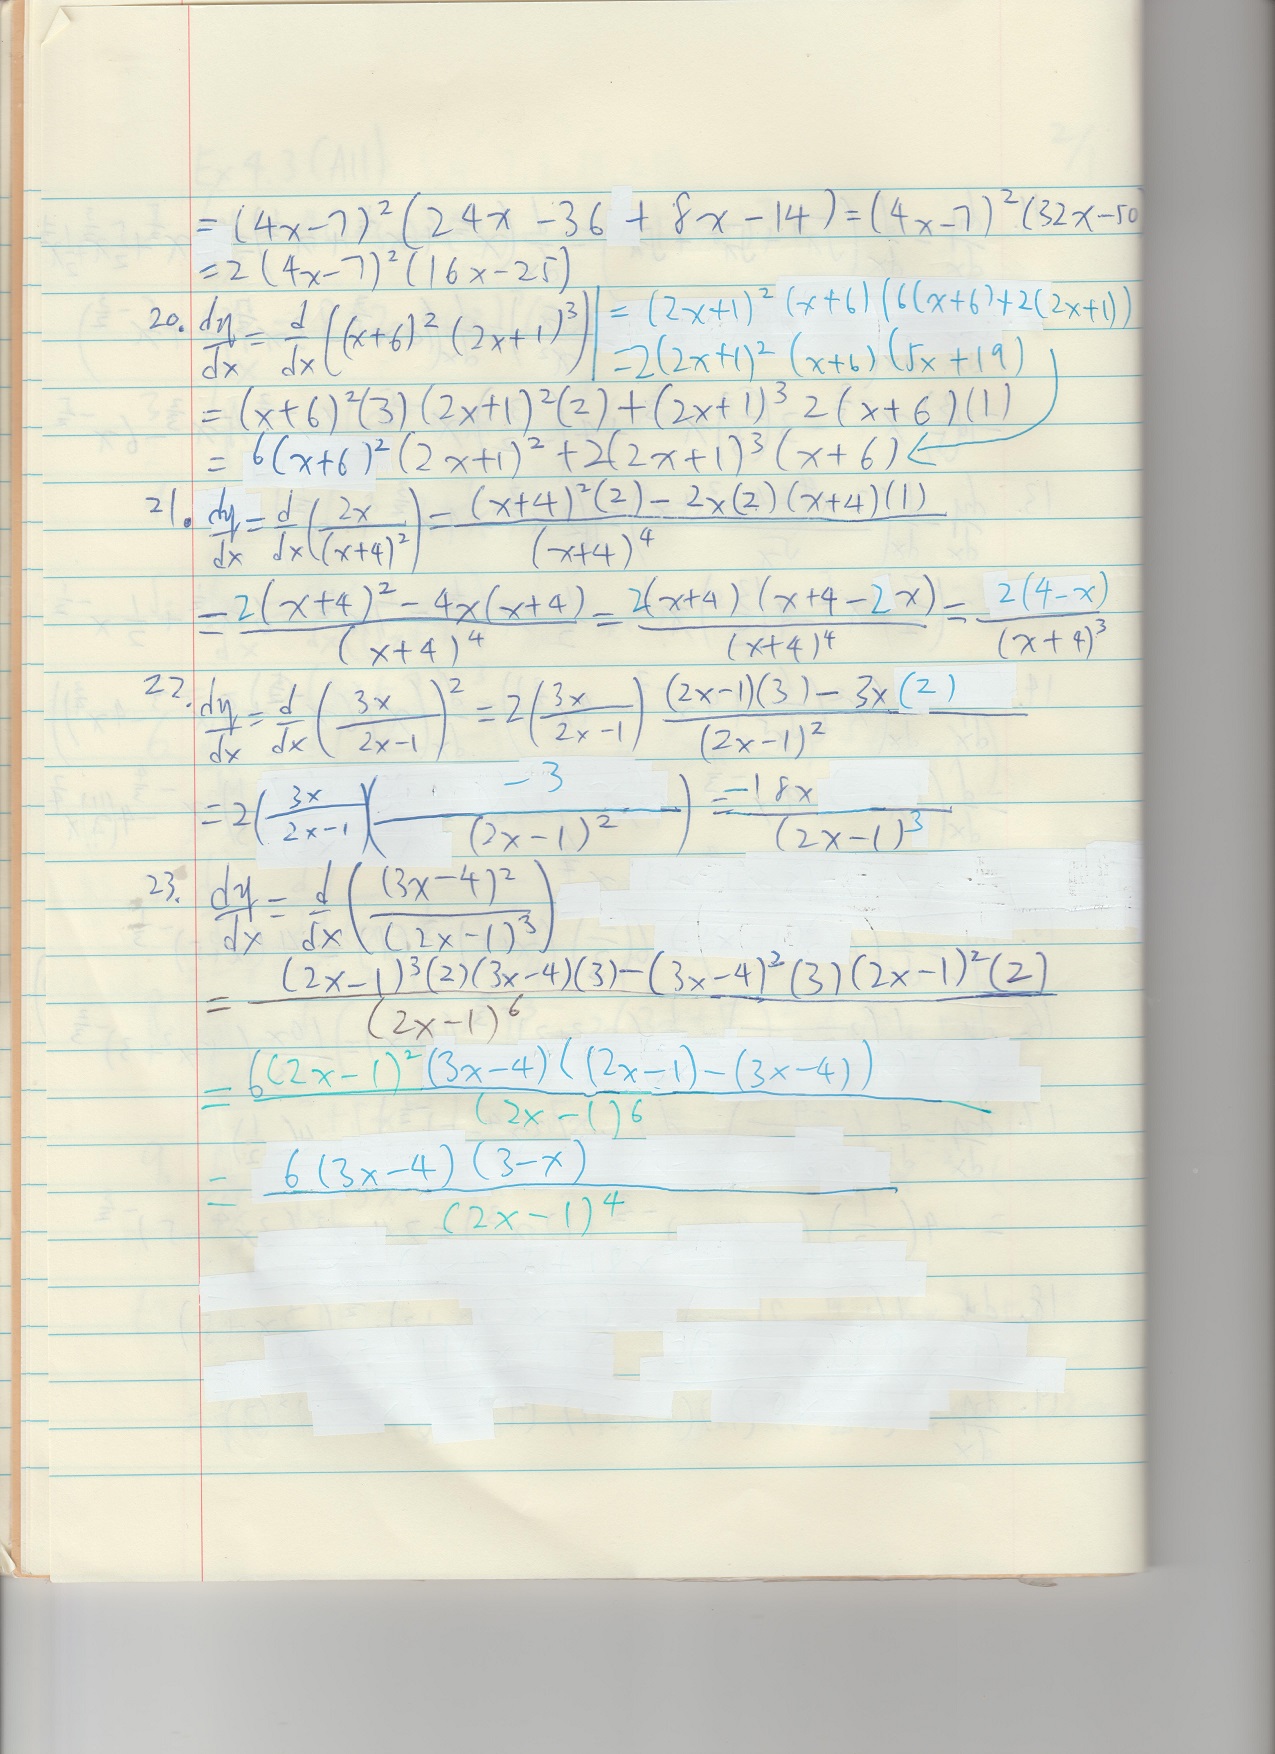 = (4x-7)² (24x - 36 + 8x - 14) = (4x-7)² (32x-50
= 2 (4x-7)² (16x-25)
20. dy/dx = d/dx ((x+6)² (2x+1)³)
= (2x+1)² (x+6) (6(x+6)+2(2x+1))
= 2(2x+1)² (x+6) (5x+19)
= (x+6)²(3)(2x+1)²(2)+(2x+1)³ 2(x+6)(1)
= 6(x+6)² (2x+1)² + 2(2x+1)³ (x+6)
21. dy/dx = d/dx (2x/(x+4)²) = ((x+4)²(2) - 2x(2)(x+4)(1))/(x+4)⁴
= (2(x+4)² - 4x(x+4))/(x+4)⁴ = (2(x+4)(x+4-2x))/(x+4)⁴ = 2(4-x)/(x+4)³
22. dy/dx = d/dx (3x/2x-1)² = 2(3x/2x-1) ((2x-1)(3) - 3x(2))/(2x-1)²
= 2(3x/2x-1)(-3/(2x-1)²) = -18x/(2x-1)³
23. dy/dx = d/dx ((3x-4)²/(2x-1)³)
= ((2x-1)³(2)(3x-4)(3)-(3x-4)²(3)(2x-1)²(2))/(2x-1)⁶
= 6(2x-1)²(3x-4)((2x-1)-(3x-4))/(2x-1)⁶
= 6(3x-4)(3-x)/(2x-1)⁴